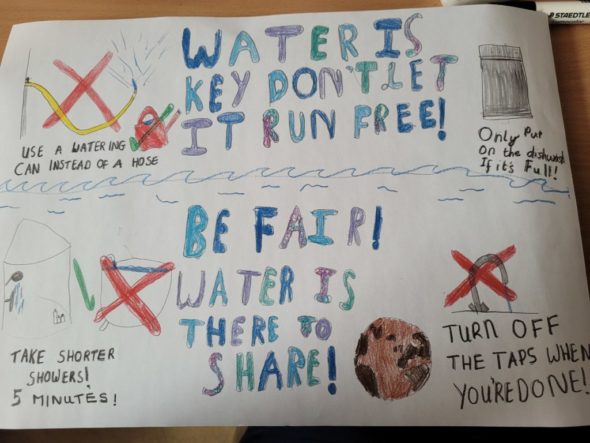 STAEDTLER
WATER IS
KEY DON'T LET
IT RUN FREE!
USE A WATERING
CAN INSTEAD OF A HOSE
Only Put
On the dishwash
If it's Full!
BE FAIR!
WATER IS
THERE TO
SHARE!
TAKE SHORTER
SHOWERS!
5 MINUTES!
TURN OFF
THE TAPS WHEN
YOU'RE DONE!